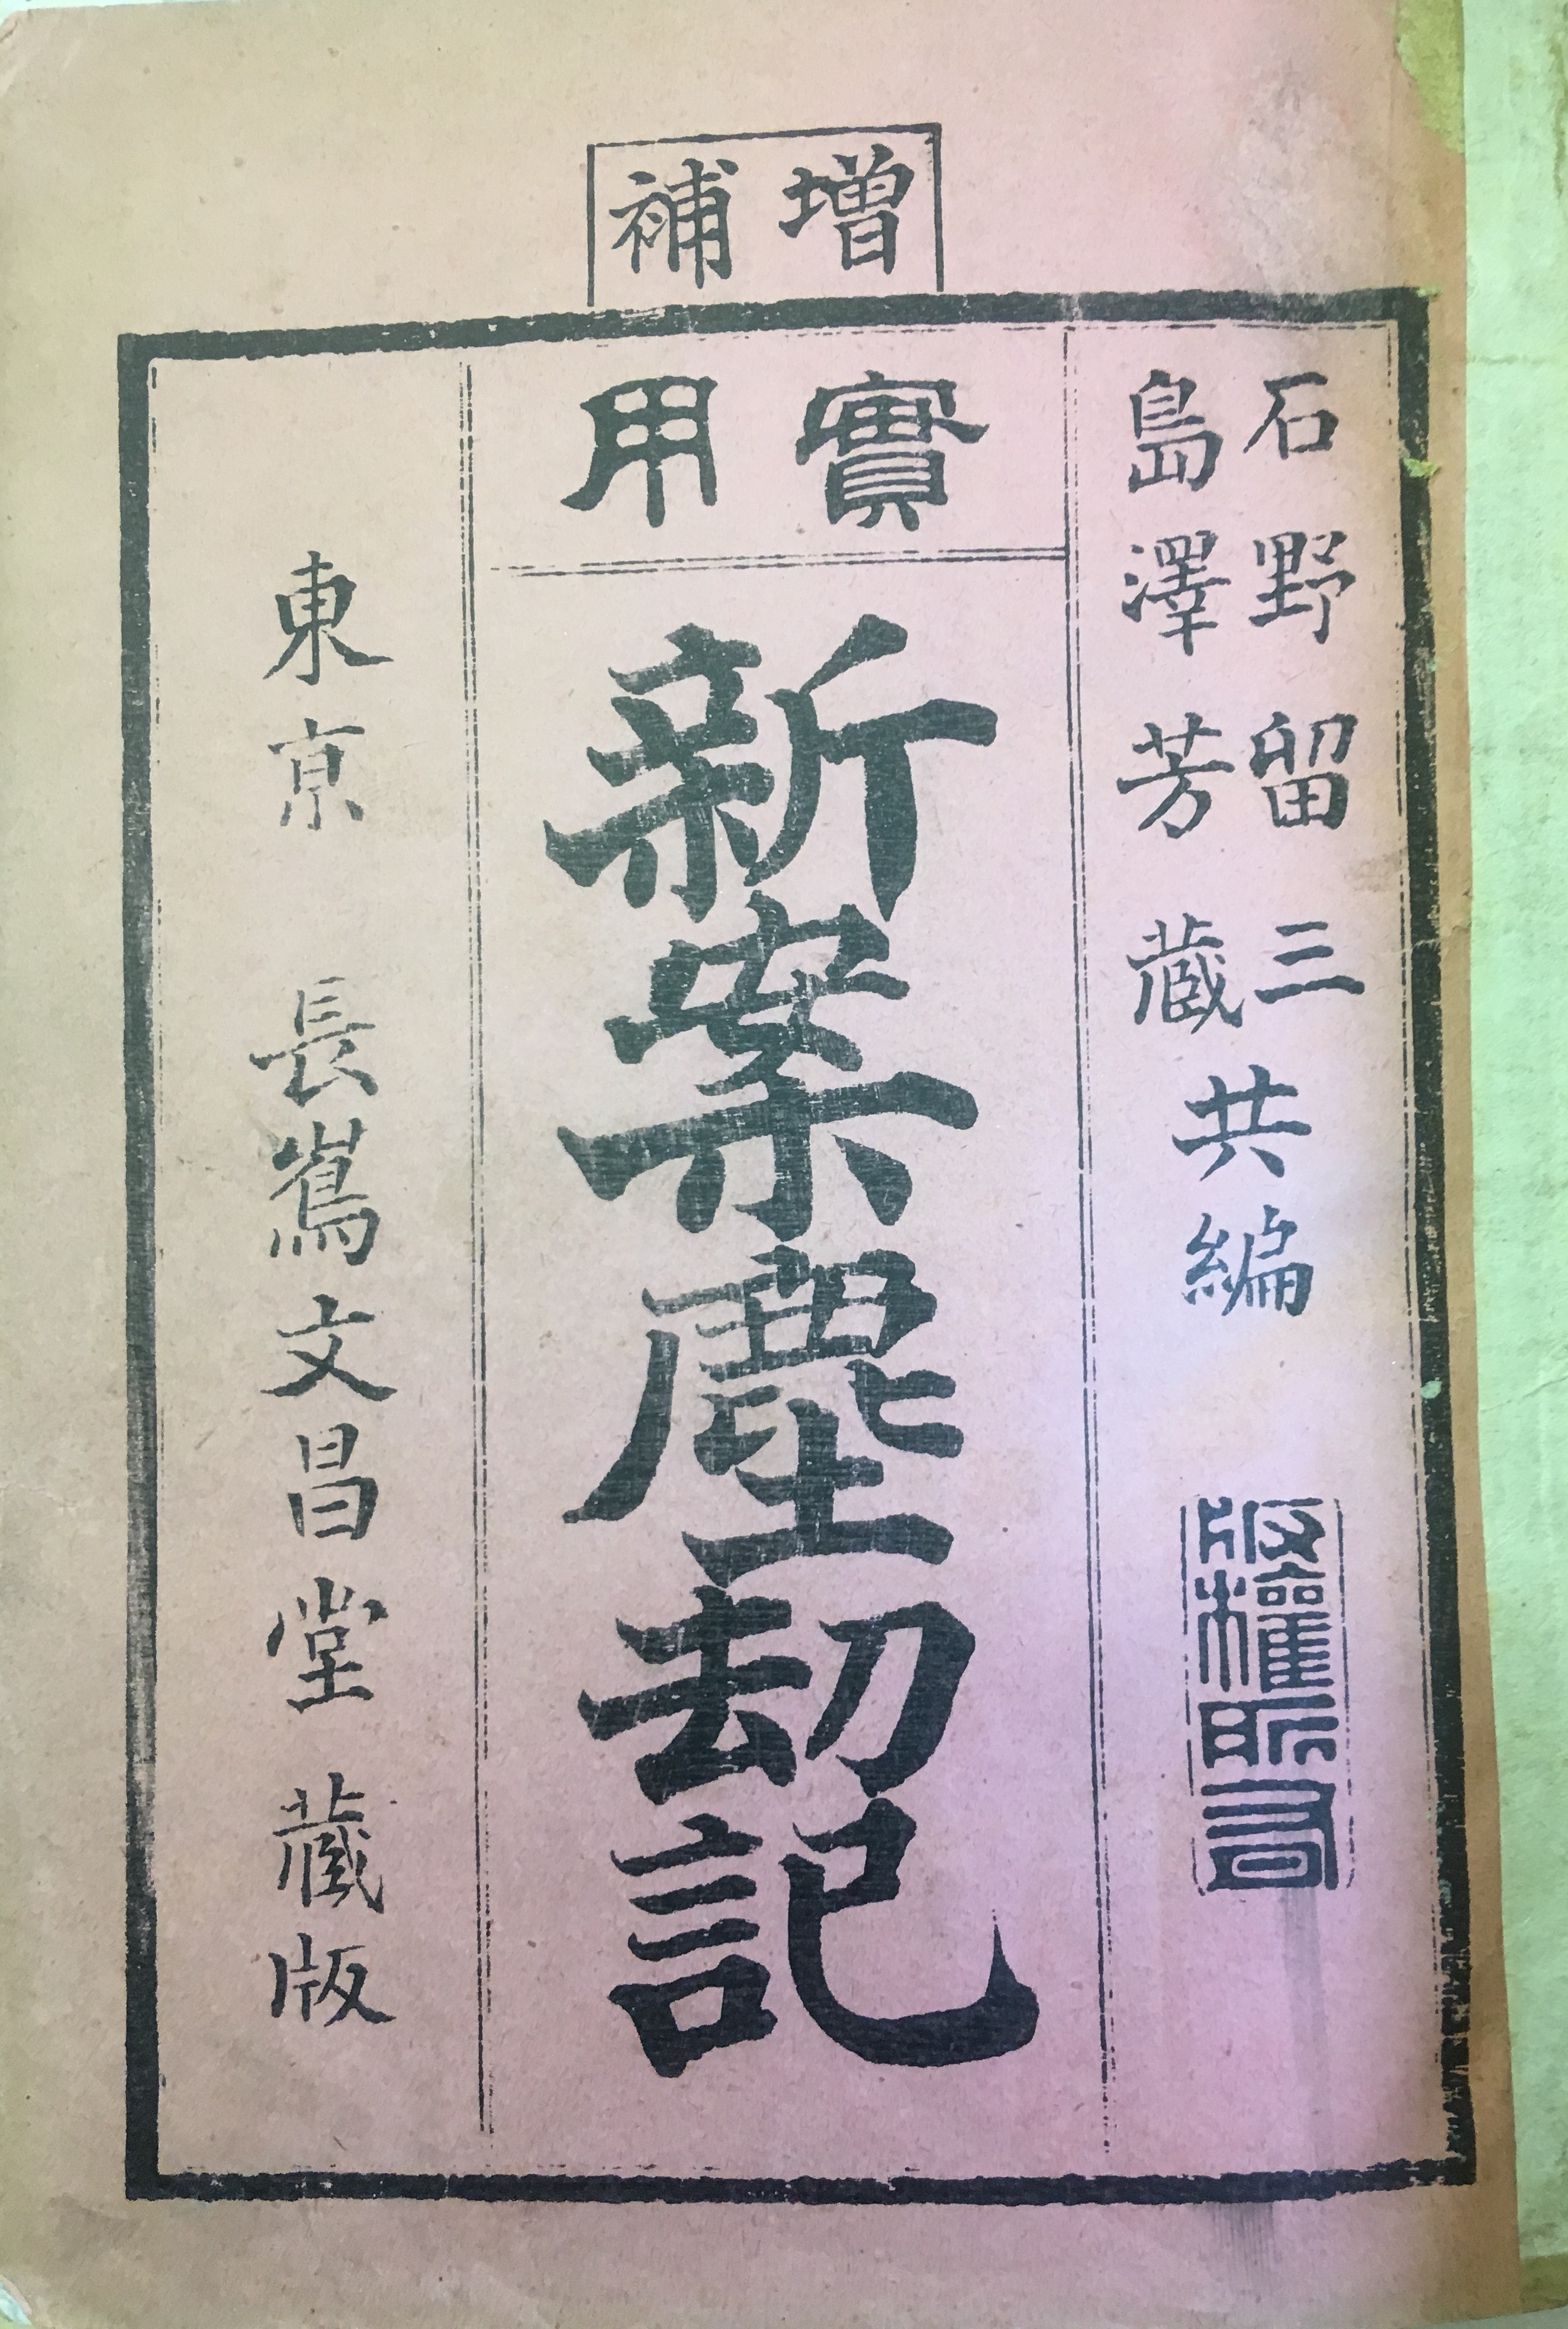 增補
實用
石野留三
島澤芳藏
共編
版權所有
新案塵刧記
東京 長嶌文昌堂藏版